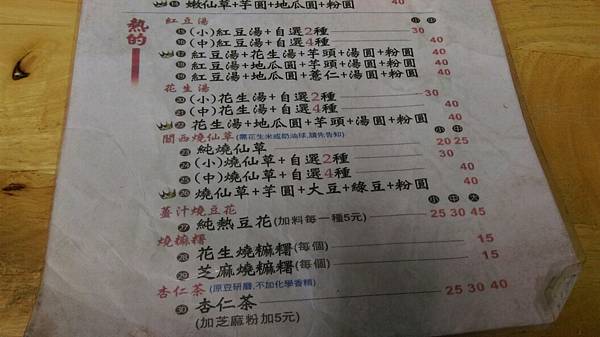 嫩仙草+芋圓+地瓜圓+粉圓 40
熱的
紅豆湯 小 中
⑮ (小)紅豆湯+自選2種 30
⑯ (中)紅豆湯+自選4種 40
⑰ 紅豆湯+花生湯+芋頭+湯圓+粉圓 40
⑱ 紅豆湯+地瓜圓+芋頭+湯圓 40
⑲ 紅豆湯+地瓜圓+薏仁+湯圓 40
花生湯
⑳ (小)花生湯+自選2種 30
㉑ (中)花生湯+自選4種 40
㉒ 花生湯+地瓜圓+芋頭+湯圓+粉圓 40
關西燒仙草(需花生米或奶油球,請先告知) 小 中
㉓ 純燒仙草 20 25
㉔ (小)燒仙草+自選2種 30
㉕ (中)燒仙草+自選4種 40
㉖ 燒仙草+芋圓+大豆+綠豆+粉圓 40
薑汁燒豆花 小 中 大
㉗ 純熱豆花(加料每一種5元) 25 30 45
燒麻糬
㉘ 花生燒麻糬(每個) 15
㉙ 芝麻燒麻糬(每個) 15
杏仁茶(原豆研磨,不加化學香精)
㉚ 杏仁茶 25 30 40
(加芝麻粉加5元)